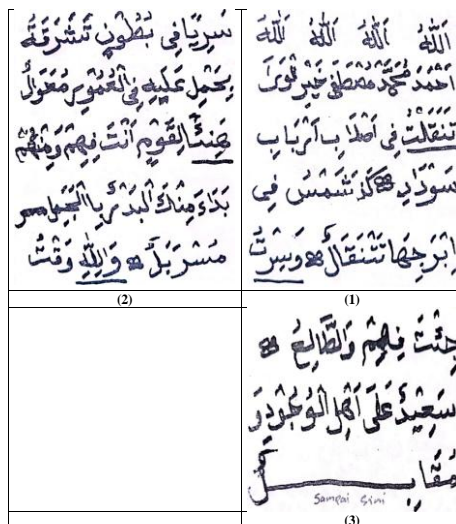 اَللّٰهُ اَللّٰهُ اَللّٰهُ اَللّٰهُ
اَحْمَدْ مُحَمَّدْ مُصْطَفَى خَيْر
تَنَقَّلْتُ فِى اَصْلَابِ اَرْبَابِ
سَوْدَادٍ كَذَ شَمْسُ فِى
اِبْرَجِهَا تَتَنَقَالُ وَسِرْتُ
(1)
سَرِيًا فِى بُطُوْنٍ تَشَرَّقَةُ
بِحَمْلٍ عَلَيْهِ فِى الْعُمُوْرِ مُعَوَلُ
هَنِئًا لِقَوْمٍ اَنْتَ فِيْهِمْ وَمِنْهُمْ
بَدَاءَ مِنْكَ الْبَدْرُ بِا الْجَمَلِ
مُسَرْبَلُ وَاللّٰهِ وَقْتُ
(2)
جِئْتَ فِيْهِمْ وَالطَّالِعُ
سَعِيْدُ عَلَى اَهْلِ الْوُجُوْدِ وَ
مُقَابِـــــــلُ
Sampai sini
(3)